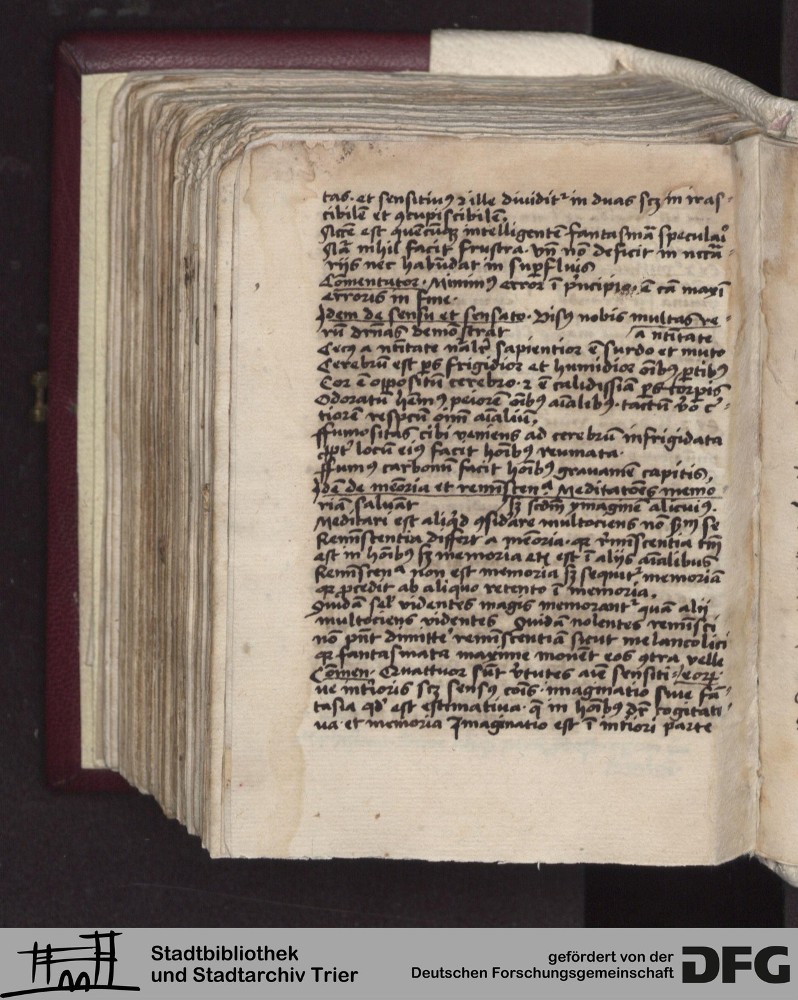 tas. et sensitiuꝰ ⁊ ille diuidit᷑ in duas scꝫ in iras⸗
cibilē et ꝯcupiscibilē.
Nccē est quēcūqꝫ intelligentē fantasmā speculaī
Nā nihil facit frustra. vn̄ nō deficit in nccā⸗
rijs nec habūdat in suꝑfluis
Comentator. Minimꝰ error ī pͥncipio ē cā maxī
erroris in fine.
Idem de sensu et sensato. Visꝰ nobis multas re⸗
rū dr̄nas demōstrat
a nt̄itate
Cecꝰ a nt̄itate nal̄r sapientior ē surdo et muto
Cerebrū est ꝑs frigidior et humidior oībꝰ ꝑtibꝰ
Cor ē oppositū cerebro. ⁊ ē calidissīa ꝑs corꝑis
Odoratū hēmꝰ peiorē oībꝰ aīalibꝰ. tactū v̄o
tiorē respcū oīm aīaliū.
ffumositas cibi veniens ad cerebrū infrigidata
ꝓpt᷑ locū eiꝰ facit hoībꝰ reumata.
ffumꝰ carbonū facit hoībꝰ grauamē capitis.
Idē de mēoria et remīsten᷑ᵃ Meditatōēs memo
riā saluāt
sꝫ scdm̄ ymaginē alicuiꝰ.
Meditari est aliqͥd ꝯsid᷑are multociens nō sm̄ se
Remīstentia differt a mēoria. qꝛ r᷑mīscentia tm̄
est in hoībꝰ sꝫ memoria etī est ī alijs aīalibus
Remīsten᷑ᵃ non est memoria sꝫ sequit᷑ memoriā
qꝛ ꝓcedit ab aliquo retento ī memoria.
Quidā sel᷑ videntes magis memorant᷑ quā alij
multociens videntes Quidā nolentes remīsci
nō pn̄t dimitt᷑e remīscentiā sicut melancolici
qꝛ fantasmata maxime mouēt eos ꝯtra velle
Cōmen. Quattuor sūt v᷑tutes aīe sensiti⸗
ue int᷑ioris scꝫ sensꝰ cōis. imaginatio siue fā⸗
tasia qd᷑ est estimatiua. q̄ in hoībꝰ dr̄ cogitati
ua. et memoria Imaginatio est ī int᷑iori parte
Stadtbibliothek
und Stadtarchiv Trier
gefördert von der
Deutschen Forschungsgemeinschaft
DFG